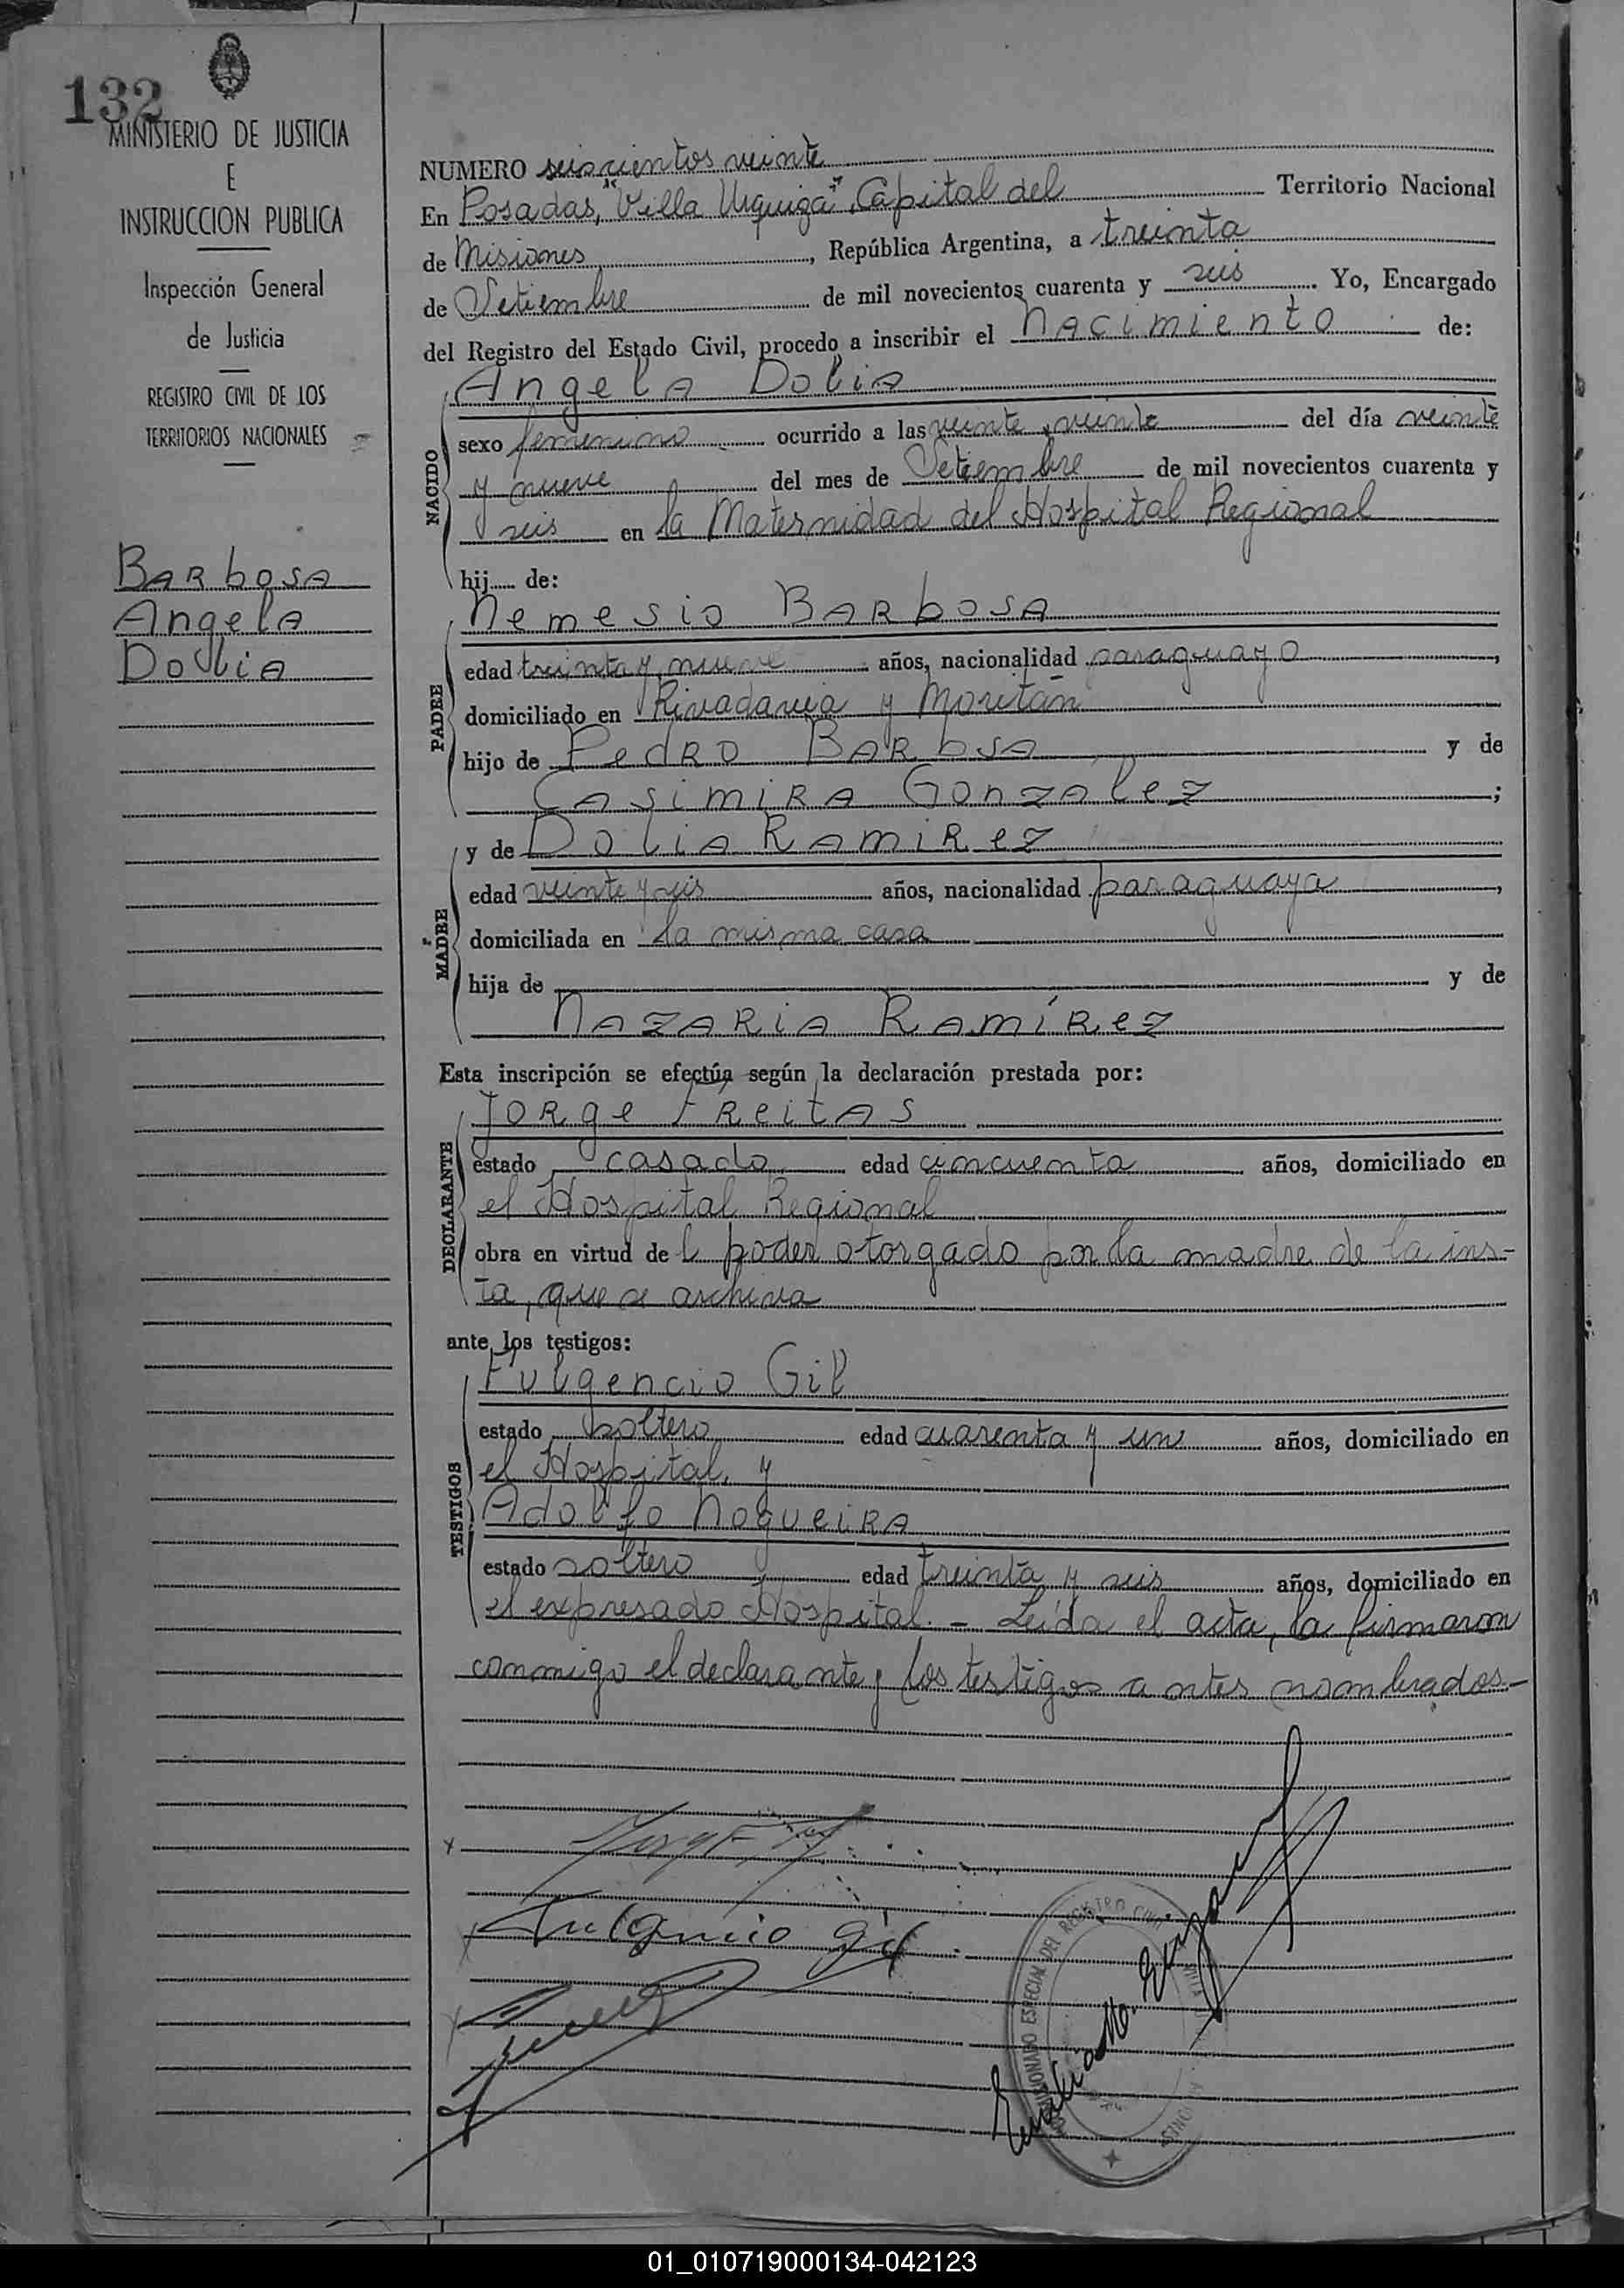 132
MINISTERIO DE JUSTICIA
E
INSTRUCCION PUBLICA
Inspección General
de Justicia
REGISTRO CIVIL DE LOS
TERRITORIOS NACIONALES
Barbosa
Angela
Dolia
NUMERO seiscientos veinte
En Posadas, "Villa Urquiza", Capital del Territorio Nacional
de Misiones, República Argentina, a treinta
de Setiembre de mil novecientos cuarenta y seis. Yo, Encargado
del Registro del Estado Civil, procedo a inscribir el Nacimiento de:
Angela Dolia
NACIDO
sexo femenino ocurrido a las veinte y veinte del día veinte
y nueve del mes de Setiembre de mil novecientos cuarenta y
seis en la Maternidad del Hospital Regional
hij de:
Nemesio Barbosa
PADRE
edad treinta y nueve años, nacionalidad paraguayo,
domiciliado en Rivadavia y Moritán
hijo de Pedro Barbosa y de
Casimira Gonzalez;
y de Dolia Ramirez
MADRE
edad veinte y seis años, nacionalidad paraguaya,
domiciliada en la misma casa
hija de y de
Nazaria Ramírez
Esta inscripción se efectúa según la declaración prestada por:
Jorge Freitas
DECLARANTE
estado casado edad cincuenta años, domiciliado en
el Hospital Regional
obra en virtud de l poder otorgado por la madre de la ins-
ta, que se archiva
ante los testigos:
Fulgencio Gil
TESTIGOS
estado soltero edad cuarenta y un años, domiciliado en
el Hospital, y
Adolfo Nogueira
estado soltero edad treinta y seis años, domiciliado en
el expresado Hospital. - Leída el acta, la firmaron
conmigo el declarante y los testigos antes nombrados.-
Fulgencio Gil
COMISIONADO ESPECIAL DEL REGISTRO CIVIL
01_010719000134-042123